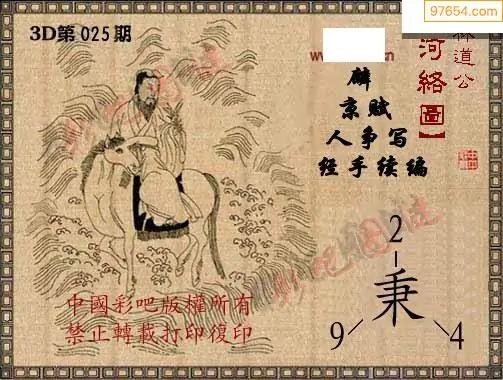 97654.com
3D第025期
www.
林道公
河络圖】
麟
京赋
人争写
经手续编
2
秉
9
4
中國彩吧版權所有
禁止轉載打印復印